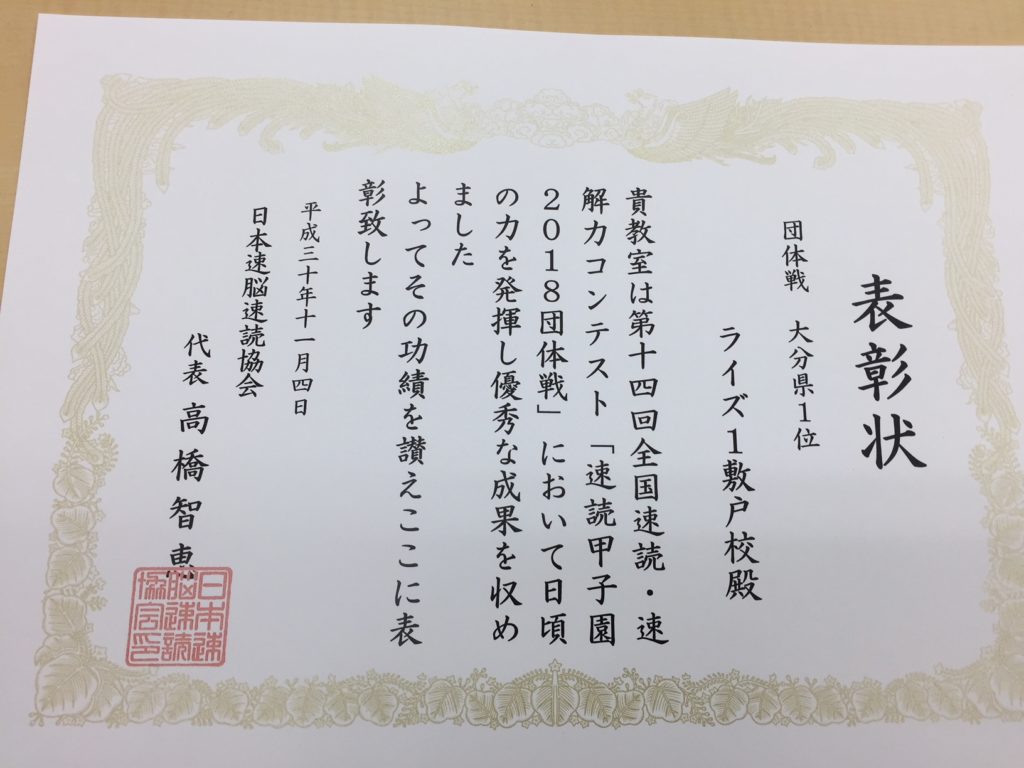 表彰状
団体戦 大分県1位
ライズ1敷戸校殿
貴教室は第十四回全国速読・速
解力コンテスト「速読甲子園
2018団体戦」において日頃
の力を発揮し優秀な成果を収め
ました
よってその功績を讃えここに表
彰致します
平成三十年十一月四日
日本速脳速読協会
代表 高橋智恵
日本速
脳速読
協会印